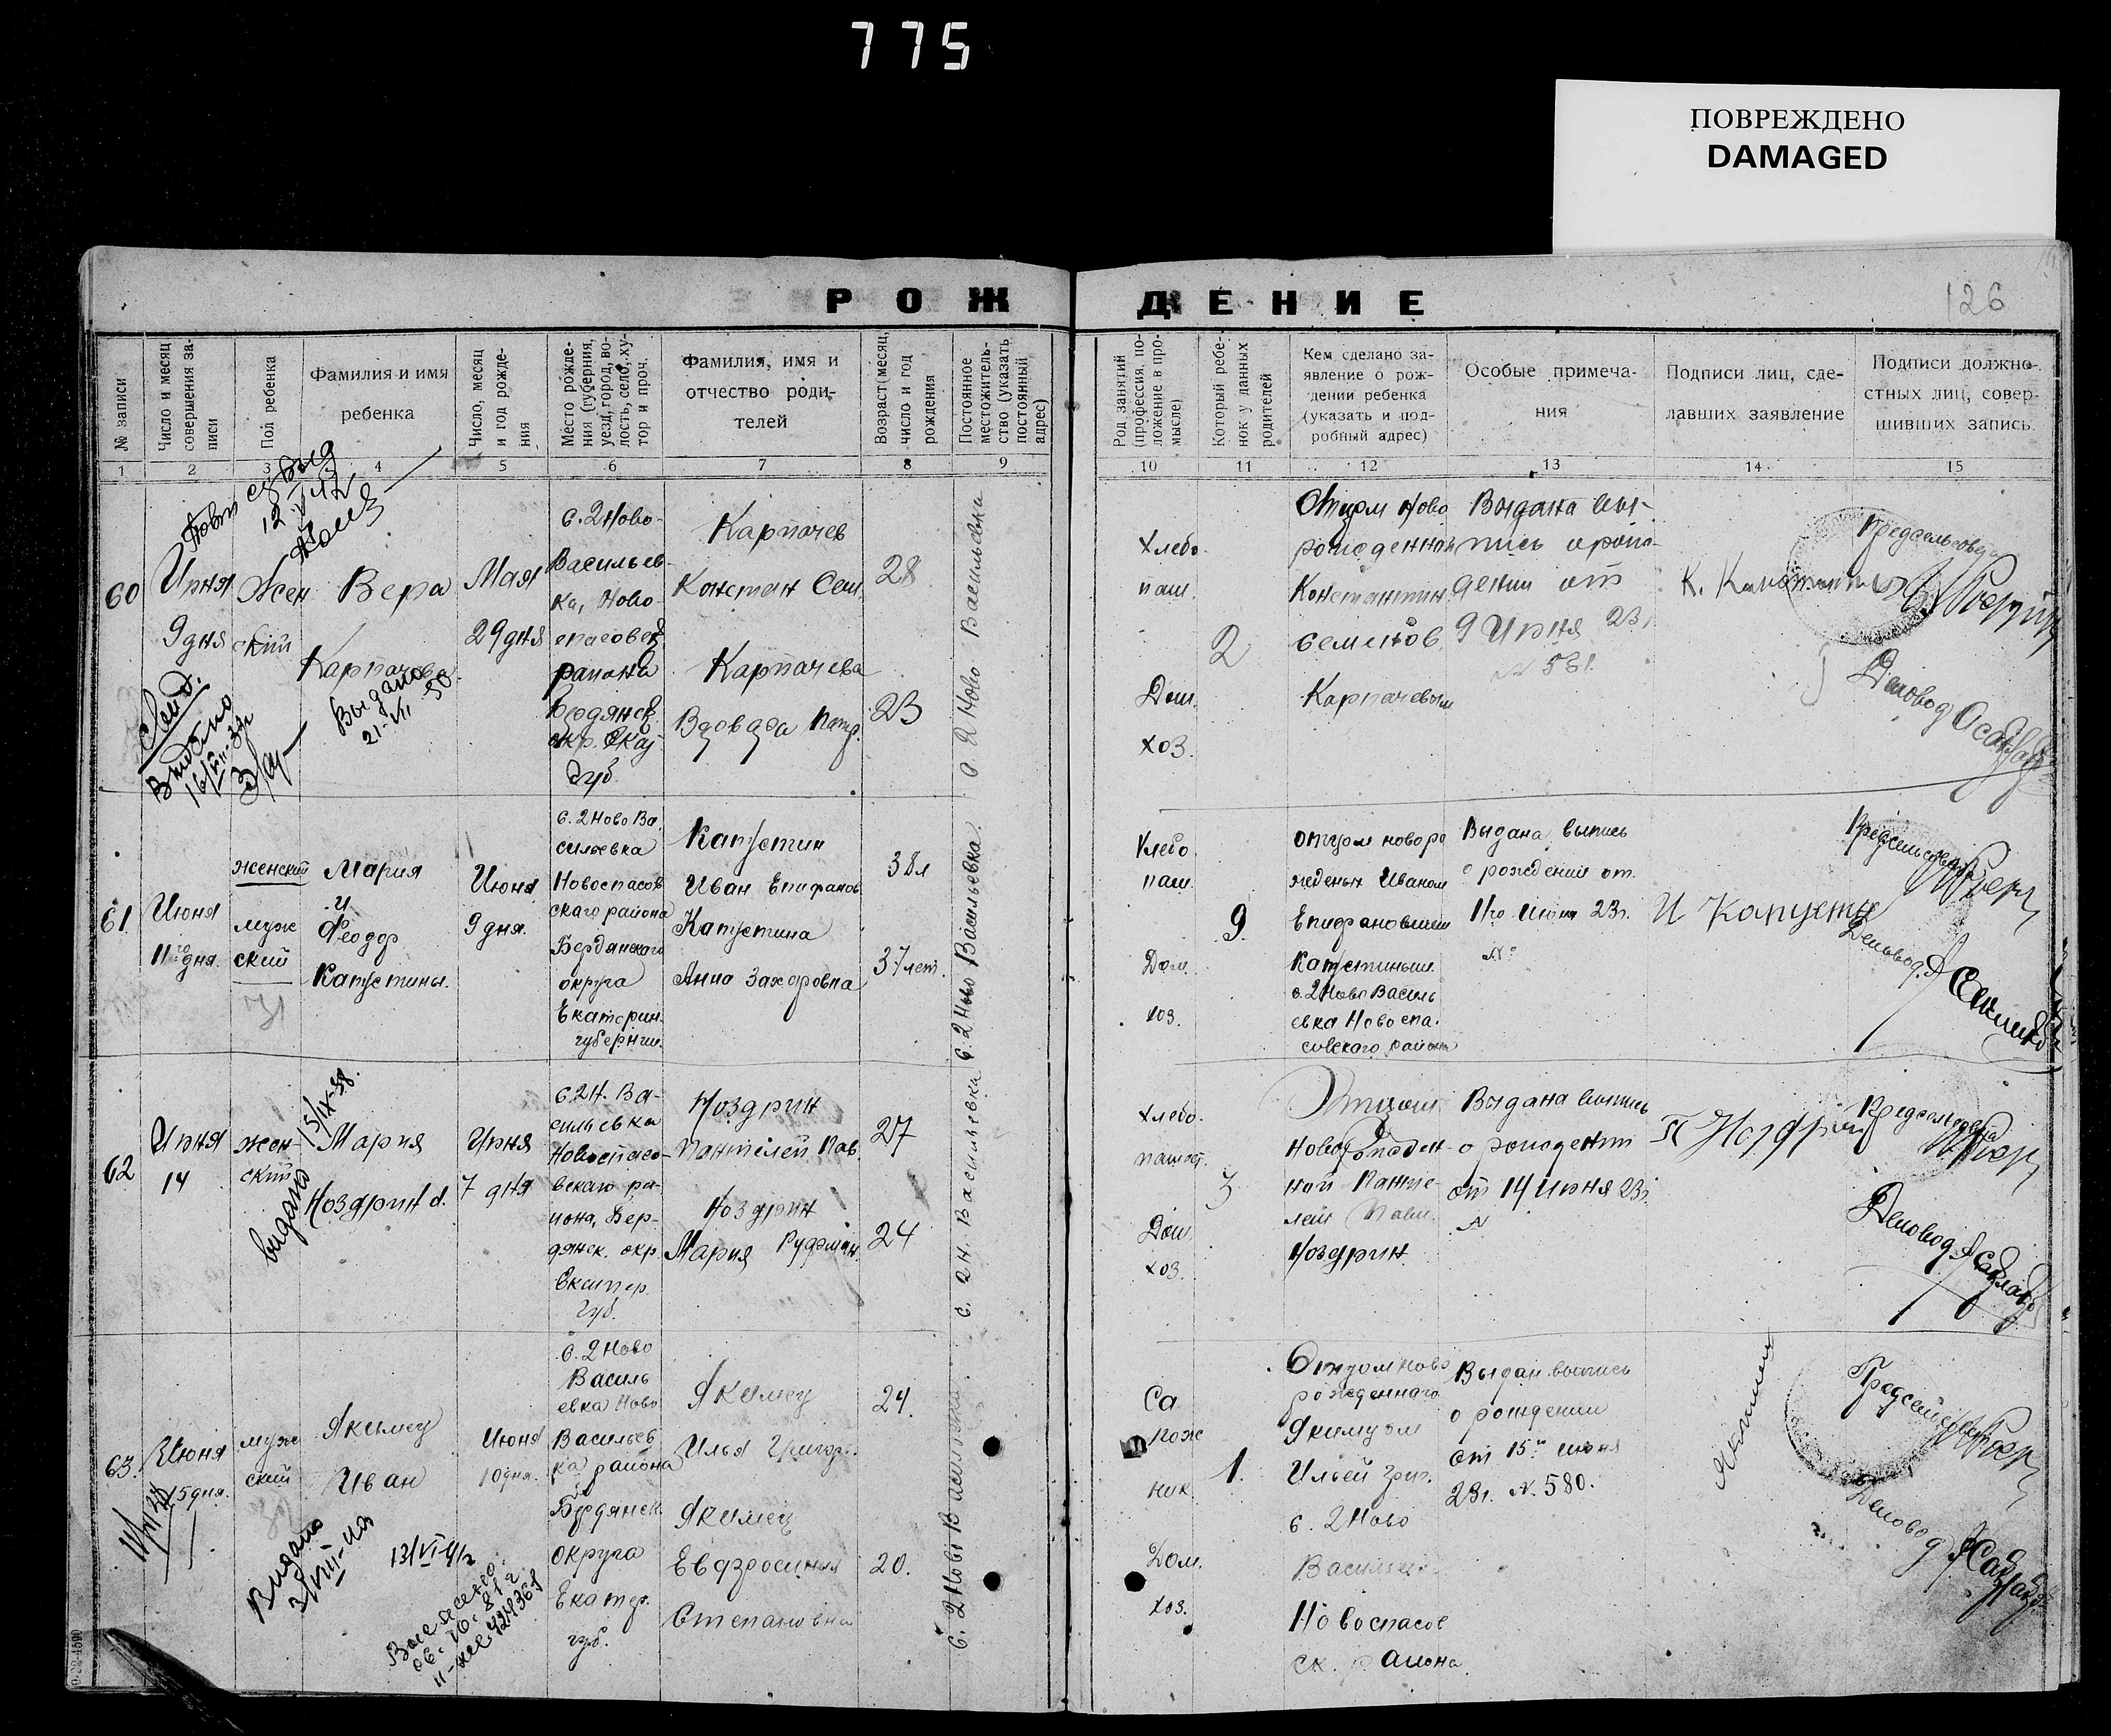 775
ПОВРЕЖДЕНО
DAMAGED
РОЖДЕНИЕ
126
№ записи
Число и месяц совершения записи
Пол ребенка
Фамилия и имя
ребенка
Число, месяц
и год рожде-
ния
Место рожде-
ния (губерния,
уезд, город, во-
лость, село, ху-
тор и проч.
Фамилия, имя и
отчество роди-
телей
Возраст (месяц,
число и год
рождения
Постоянное
местожитель-
ство (указать
постоянный
адрес)
Род занятий
(профессия, по-
ложение в про-
мысле)
Который ребе-
нок у данных
родителей
Кем сделано за-
явление о рож-
дении ребенка
(указать и под-
робный адрес)
Особые примеча-
ния
Подписи лиц, сде-
лавших заявление
Подписи должно-
стных лиц, совер-
шивших запись.
1 2 3 4 5 6 7 8 9 10 11 12 13 14 15
60
Июня
9 дня
Жен
ский
Вера
Карпачева
Выдано
21-VII-50
Видано
Мая
29 дня
с. 2 Ново-
Васильев-
ка, Ново-
спасовск
района
Бердянск
окр. Екат
губ
Карпачев
Констан Сем.
Карпачева
28
23
с 2 Ново Васильевка
Хлебо-
паш.
Дом.
хоз.
2
Отцом Ново
рожденной
Константин
Семенов
Карпачевым
Выдана вы-
пись о рож-
дении от
9 Июня 23г
№ 561
Предсельсовета
Деловод
61
Июня
11го дня.
женский
муж
ский
Мария
и
Феодор
Капустины.
Июня
9 дня.
с. 2 Ново Ва
сильевка
Новоспасов
скаго района
Бердянскаго
округа
Екатерин.
губернии.
Капустин
Иван Епифанов
Капустина
Анна Захаровна
38 л
37 лет.
с. 2 Ново Васильевка.
Хлебо
паш.
Дом.
хоз.
9.
отцом новоро
жденых Иваном
Епифановичем
Капустиным.
с. 2 Ново Василь
евка Новоспа.
совского района
Выдана выпись
о рождении от
11го июня 23г.
№
И Капусти
Предсельсовета
Деловод.
62
Июня
14
жен-
ский
видано
15/IX-38.
Мария
Ноздрин d.
Июня
7 дня
с. 2 Н. Ва-
сильевка
Новоспасо-
вскаго ра-
иона, Бер-
дянск. окр
Екатер.
губ.
Ноздрин
Пантелей Пав.
Ноздрин
Мария
27
24
с. 2 Н. Васильевка
Хлебо-
пашест.
Дом.
хоз.
3
Отцом
Новорожден-
ной Панте-
лей Павл.
Ноздрин.
Выдана выпись
о рождении
от 14 Июня 23г.
№
Предсельсовета
Деловод
63.
Июня
15 дня.
муж
ский
Якимец
Иван
Видано
13/VI-41г
Июня
10 дня.
с. 2 Ново
Василь
евка Ново
Васильев
ка района
Бердянск.
округа
Екатер.
губ.
Якимец
Илья Григор.
Якимец
Евдросиния
Степановна
24.
20.
с. 2 Ново Васильевка.
Са
пож
ник
Дом.
хоз.
1.
Отцом ново
рожденнаго
Якимцом
Ильей Григ.
с. 2 Ново
Васильевк
Новоспасов
ск. района.
Выдан. выпись
о рождении
от 15го июня
23г. №. 580.
Якимец
Деловод